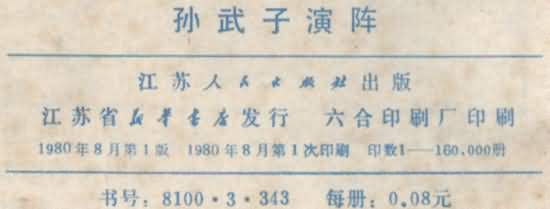 孙武子演阵
江苏人民出版社出版
江苏省新华书店发行 六合印刷厂印刷
1980年8月第1版 1980年8月第1次印刷 印数1—160,000册
书号：8100·3·343 每册：0.08元